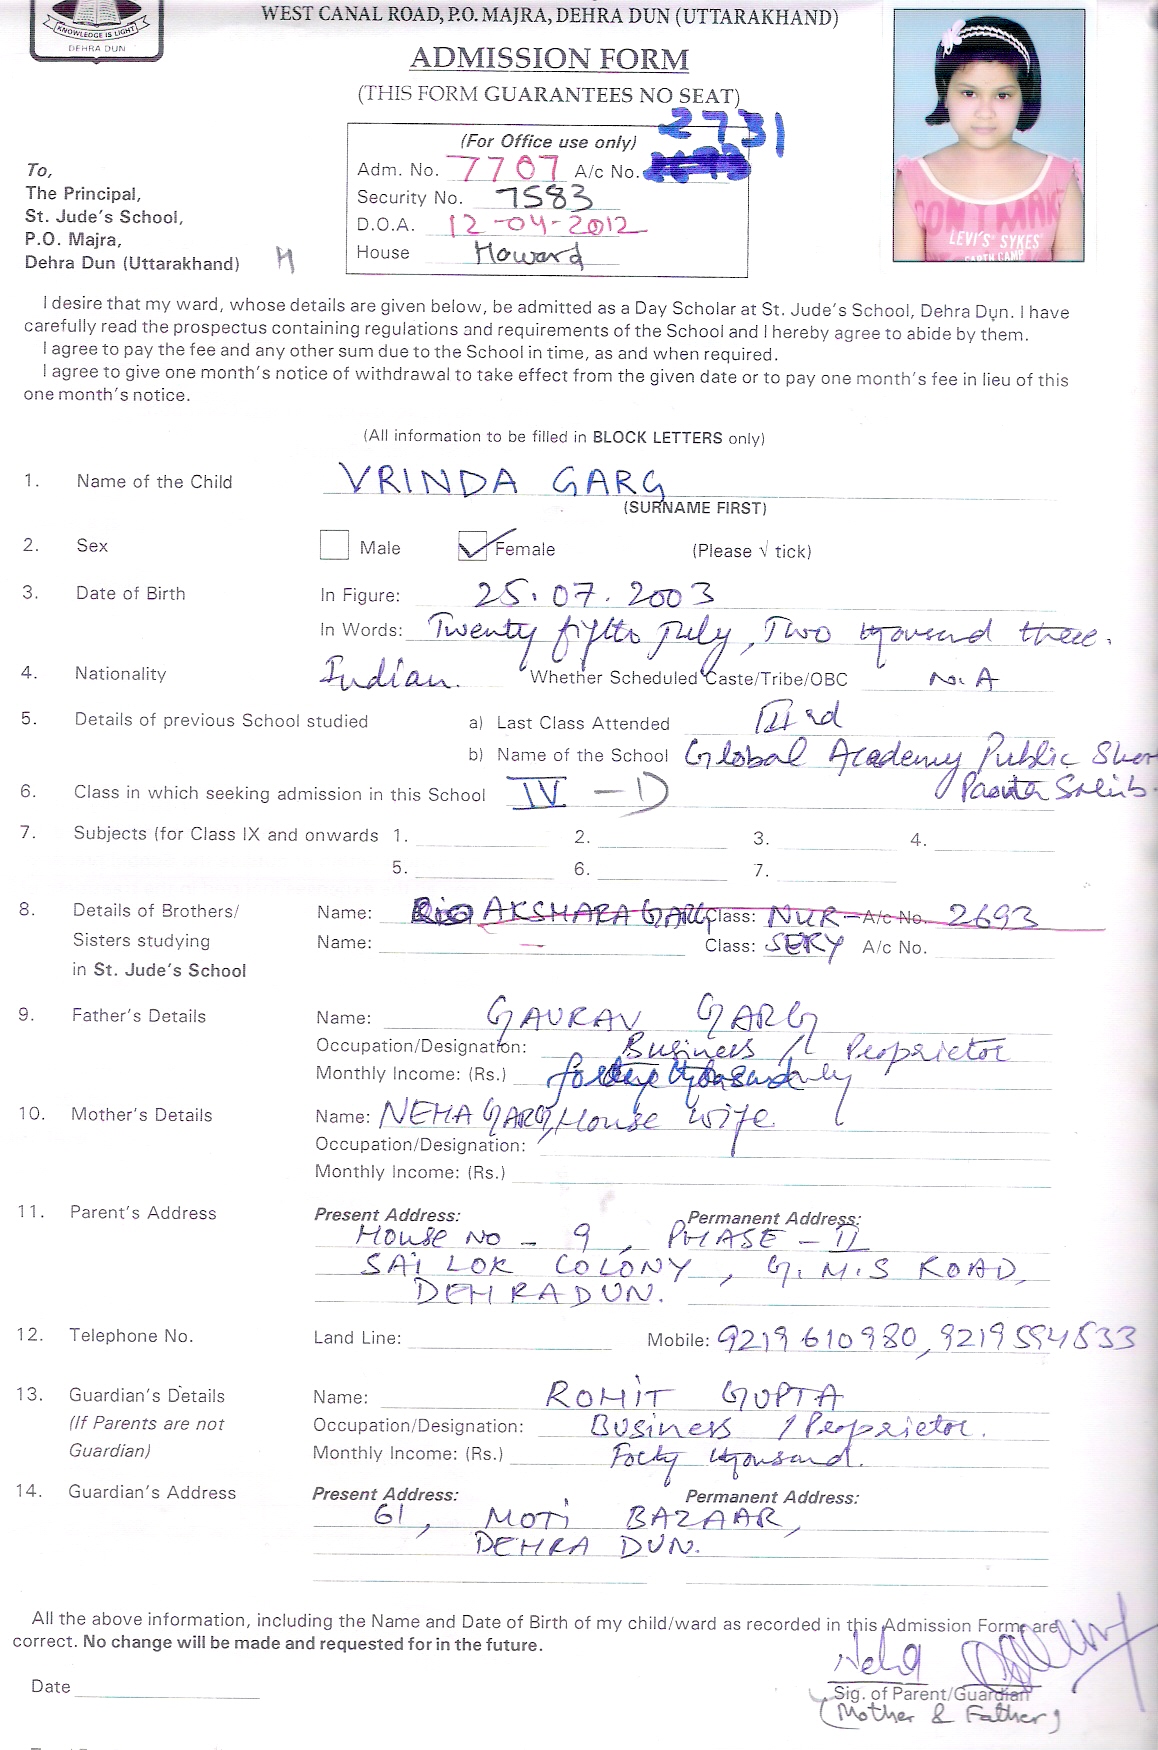 KNOWLEDGE IS LIGHT
DEHRA DUN
WEST CANAL ROAD, P.O. MAJRA, DEHRA DUN (UTTARAKHAND)
ADMISSION FORM
(THIS FORM GUARANTEES NO SEAT)
2731
(For Office use only)
Adm. No. 7707 A/c No.
Security No. 7583
D.O.A. 12-04-2012
House Howard
To,
The Principal,
St. Jude's School,
P.O. Majra,
Dehra Dun (Uttarakhand)
LEVI'S' SYKES'
I desire that my ward, whose details are given below, be admitted as a Day Scholar at St. Jude's School, Dehra Dun. I have
carefully read the prospectus containing regulations and requirements of the School and I hereby agree to abide by them.
I agree to pay the fee and any other sum due to the School in time, as and when required.
I agree to give one month's notice of withdrawal to take effect from the given date or to pay one month's fee in lieu of this
one month's notice.
(All information to be filled in BLOCK LETTERS only)
1. Name of the Child VRINDA GARG
(SURNAME FIRST)
2. Sex Male Female (Please √ tick)
3. Date of Birth In Figure: 25.07.2003
In Words: Twenty fifth July, Two thousand three.
4. Nationality Indian. Whether Scheduled Caste/Tribe/OBC N.A
5. Details of previous School studied a) Last Class Attended IIIrd
b) Name of the School Global Academy Public
Paonta
6. Class in which seeking admission in this School IV - D
7. Subjects (for Class IX and onwards 1. 2. 3. 4.
5. 6. 7.
8. Details of Brothers/ Name: AKSHARA GARG Class: NUR A/c No. 2693
Sisters studying Name: - Class: A/c No.
in St. Jude's School
9. Father's Details Name: GAURAV GARG
Occupation/Designation: Business / Proprietor
Monthly Income: (Rs.) only
10. Mother's Details Name: NEHA GARG, House wife
Occupation/Designation:
Monthly Income: (Rs.)
11. Parent's Address Present Address: Permanent Address:
HOUSE NO - 9, PHASE - II
SAI LOK COLONY, G.M.S ROAD,
DEHRADUN.
12. Telephone No. Land Line: Mobile: 9219610980, 9219594533
13. Guardian's Details Name: ROHIT GUPTA
(If Parents are not Occupation/Designation: Business / Proprietor.
Guardian) Monthly Income: (Rs.) Forty thousand.
14. Guardian's Address Present Address: Permanent Address:
61, MOTI BAZAAR,
DEHRA DUN.
All the above information, including the Name and Date of Birth of my child/ward as recorded in this Admission Form are
correct. No change will be made and requested for in the future.
Neha
Date
Sig. of Parent/Guardian
(Mother & Father)